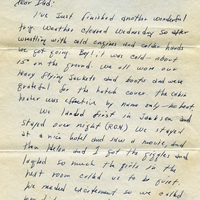 Dear Dad:
I've just finished another wonderful
trip. Weather cleared Wednesday so after
wrestling with cold engines and colder hands
we got going. Boy! it was cold - about
15° on the ground. We all wore our
Navy flying jackets and boots and were
grateful for the hatch cover the cabin
heater was effective by name only
We landed first in Jackson and
stayed over night (RON). We stayed
at a nice hotel and saw a movie, and
then Helen and I got the giggles and
laughed so much the girls in the
next room called us to be quiet.
We needed excitement so we called